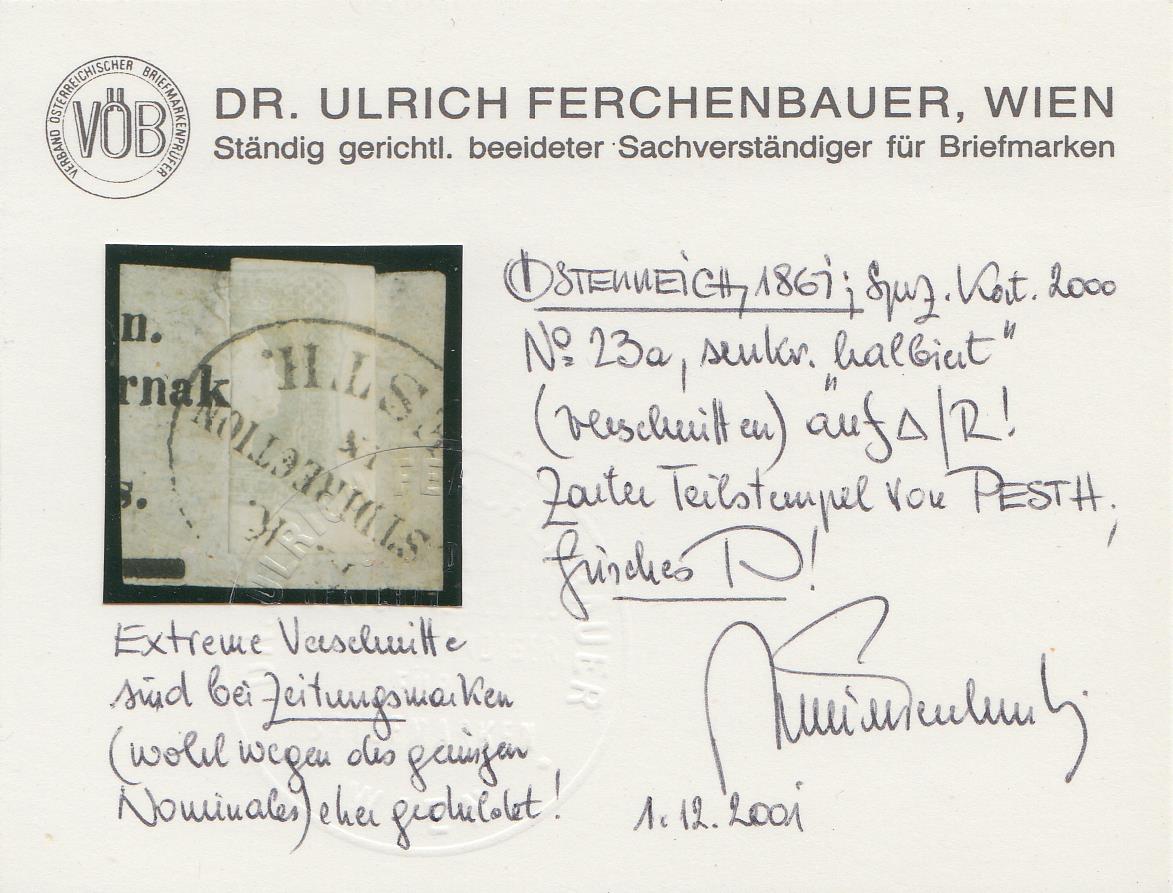 VERBAND ÖSTERREICHISCHER BRIEFMARKENPRÜFER
VÖB
DR. ULRICH FERCHENBAUER, WIEN
Ständig gerichtl. beeideter Sachverständiger für Briefmarken
n.
rnak
s.
H.I.ST
IX
STDIRECTION
K.
ÖSTERREICH, 1861; Spez. Kat. 2000
No 23a, senkr. "halbiert"
(verschnitten) auf Δ/R!
Zarter Teilstempel von PESTH,
frisches P!
Extreme Verschnitte
sind bei Zeitungsmarken
(wohl wegen des geringen
Nominales) eher geduldet!
1.12.2001